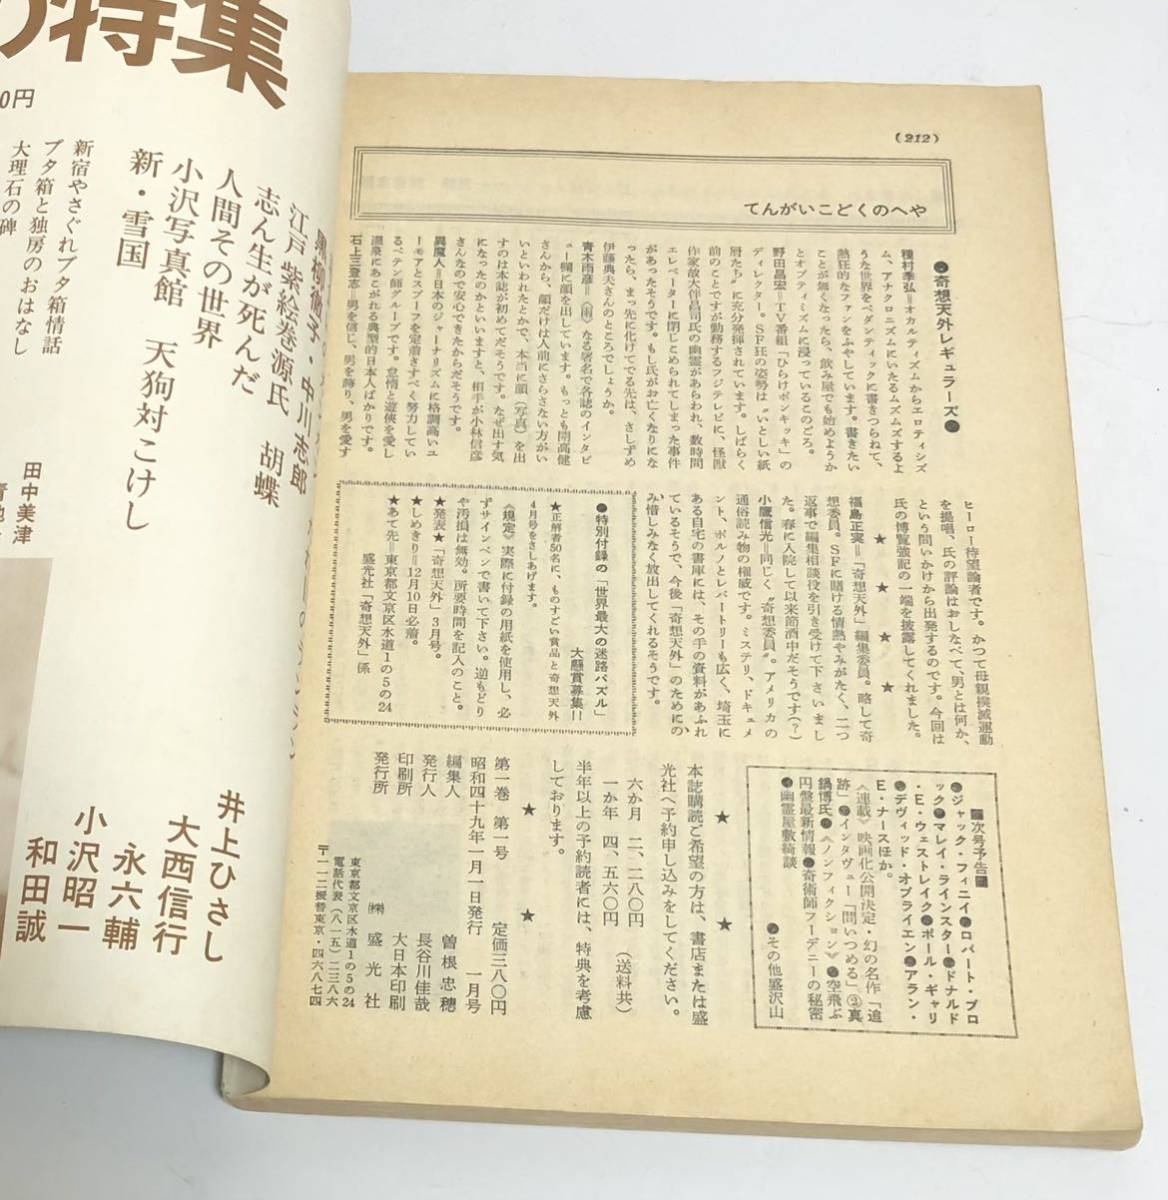 (212)
てんがいこどくのへや
●奇想天外レギュラーズ●
種村季弘＝オカルティズムからエロティシズ
ム、アナクロニズムにいたるムズムズするよ
うな世界をペダンティックに書きつらねて、
熱狂的なファンをふやしています。書きたい
ことが無くなったら、飲み屋でも始めようか
とオプティミズムに浸っているこのごろ。
野田昌宏＝TV番組「ひらけポンキッキ」の
ディレクター。SF狂の姿勢は“いとしい紙
屑たち”に充分発揮されています。しばらく
前のことですが勤務するフジテレビに、怪獣
作家故大伴昌司氏の幽霊があらわれ、数時間
エレベーターに閉じこめられてしまった事件
があったそうです。もし氏がお亡くなりにな
ったら、まっ先に化けてでる先は、さしずめ
伊藤典夫さんのところでしょうか。
青木雨彦＝《雨》なる署名で各誌のインタビ
ュー欄に顔を出しています。もっとも開高健
さんから、顔だけは人前にさらさない方がい
いといわれたとかで、本当に顔（写真）を出
すのは本誌が初めてだそうです。なぜ出す気
になったのかといいますと、相手が小林信彦
さんなので安心できたからだそうです。
異魔人＝日本のジャーナリズムに格調高いユ
ーモアとスプーフを定着さすべく努力してい
るペテン師グループです。怠惰と遊侠を愛し
温泉にあこがれる典型的日本人ばかりです。
石上三登志＝男を信じ、男を誇り、男を愛す
ヒーロー待望論者です。かつて母親撲滅運動
を提唱、氏の評論はおしなべて、男とは何か、
という問いかけから出発するのです。今回は
氏の博覧強記の一端を披露してくれました。
★　★　★
福島正実＝「奇想天外」編集委員。略して奇
想委員。SFに賭ける情熱やみがたく、二つ
返事で編集相談役を引き受けて下さいまし
た。春に入院して以来節酒中だそうです（？）
小鷹信光＝同じく“奇想委員”。アメリカの
通俗読み物の権威です。ミステリ、ドキュメ
ント、ポルノとレパートリーも広く、埼玉に
ある自宅の書庫には、その手の資料があふれ
ているそうで、今後「奇想天外」のためにの
み惜しみなく放出してくれるそうです。
●特別付録の「世界最大の迷路パズル」
大懸賞募集!!
★正解者50名に、ものすごい賞品と奇想天外
4月号をさしあげます。
《規定》実際に付録の用紙を使用し、必
ずサインペンで書いて下さい。逆もどり
や汚損は無効。所要時間を記入のこと。
★発表★「奇想天外」3月号。
★しめきり＝12月10日必着。
★あて先＝東京都文京区水道1の5の24
盛光社「奇想天外」係
■次号予告■
●ジャック・フィニイ●ロバート・ブロ
ック●マレイ・ラインスター●ドナルド
・E・ウェストレイク●ポール・ギャリ
コ●デヴィッド・オブライエン●アラン・
E・ナースほか。
《連載》映画化公開決定・幻の名作「追
跡」●インタヴュー「問いつめる」②真
鍋博氏●《ノンフィクション》●空飛ぶ
円盤最新情報●奇術師フーディニーの秘密
●幽霊屋敷綺談
●その他盛沢山
★　★
本誌購読ご希望の方は、書店または盛
光社へ予約申し込みをしてください。
六か月　二、二八〇円
一か年　四、五六〇円　（送料共）
半年以上の予約読者には、特典を考慮
しております。
★　★
第一巻　第一号　定価三八〇円
昭和四十九年一月一日発行　一月号
編集人　曽根忠穂
発行人　長谷川佳哉
印刷所　大日本印刷
発行所　㈱　盛光社
東京都文京区水道1の5の24
電話代表（八一五）二三八六
〒一一二振替東京・四六八七四
の特集
0円
黒柳徹子・中川志郎
江戸紫絵巻源氏　胡蝶
志ん生が死んだ
人間その世界
小沢写真館　天狗対こけし
新・雪国
新宿やさぐれブタ箱情話
ブタ箱と独房のおはなし
大理石の碑
田中美津
井上ひさし
大西信行
永六輔
小沢昭一
和田誠